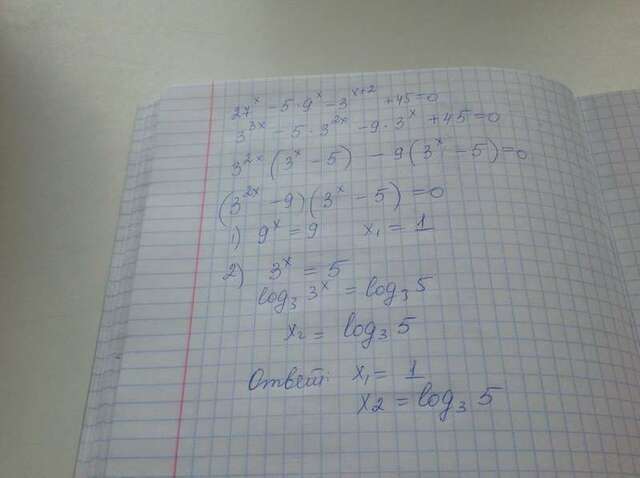 27^x - 5·9^x - 3^{x+2} + 45 = 0
3^{3x} - 5·3^{2x} - 9·3^x + 45 = 0
3^{2x} (3^x - 5) - 9 (3^x - 5) = 0
(3^{2x} - 9) (3^x - 5) = 0
1) 9^x = 9 x₁ = 1
2) 3^x = 5
log₃ 3^x = log₃ 5
x₂ = log₃ 5
Ответ: x₁ = 1
x2 = log₃ 5